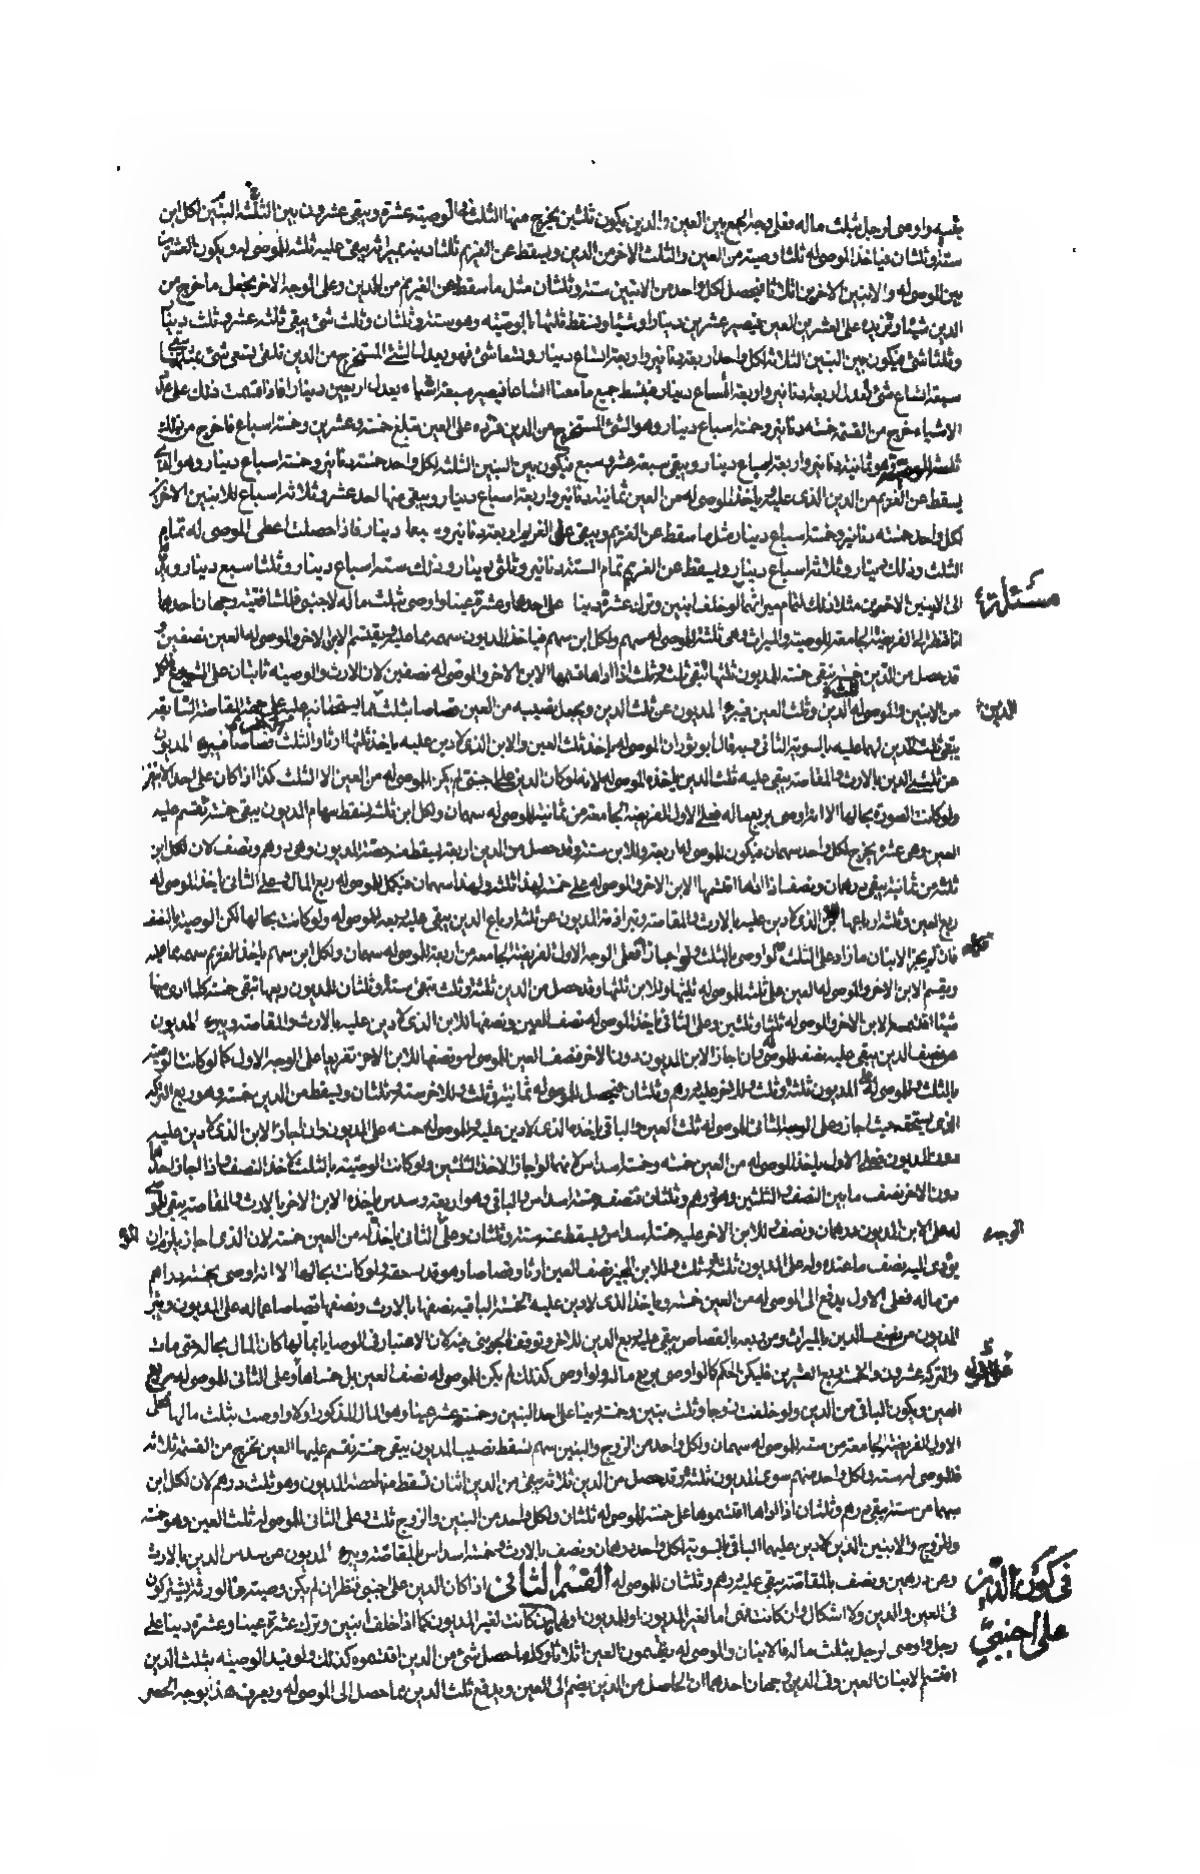 بقيه واوصى لرجل بثلث ماله فعلى وجه الجمع بين العين والدين يكون ثلثين يخرج منها الثلث الوصيته عشرة ويبقى عشرون بين الثلثة البنين لكل ابن
ستة وثلثان فياخذ الموصى له ثلثا وصيته من العين والثلث الاخر من الدين ويسقط عن الغريم ثلثا دينه ميراثه يبقى عليه ثلثه للموصى له ويكون العشرة
بين الموصى له والابنين الاخرين اثلاثا فيحصل لكل واحد من الابنين ستة وثلثان مثل ما سقط عن الغريم من الدين وعلى الوجه الاخر يجعل ما خرج من
الدين شيئا وتزيده على العشر من العين فيصير عشرين دينارا وشيئا ويسقط ثلثها بالوصيته وهو ستة وثلثان وثلث شئ يبقى ثلثه عشر وثلث دينار
وثلثا شئ فيكون بين البنين الثلاثة لكل واحد اربعة دنانير واربعة اتساع دينار وتسعا شئ فهو يعدل الشئ المستخرج من الدين
سبعة اتساع شئ يعدل اربعة دنانير واربعة اتساع دينار فابسط جميع ما معنا اتساعا فيصير سبعة اشياء يعدل اربعين دينارا فاذا قسمت ذلك على
الاشياء خرج من القسمة خمسة دنانير وخمسة اسباع دينار وهو الشئ المستخرج من الدين فزده على العين فبلغ خمسة وعشرين وخمسة اسباع فاخرج من ذلك
ثلثه وهو ثمانية دنانير واربعة اسباع دينار ويبقى سبعة عشر وسبع فيكون بين البنين الثلثة لكل واحد خمسة دنانير وخمسة اسباع دينار وهو الذي
يسقط عن الغريم من الدين الذى عليه وياخذ الموصى له من العين ثمانية دنانير واربعة اسباع دينار ويبقى منها احد عشر وثلاثة اسباع للابنين الاخرين
لكل واحد خمسة دنانير وخمسة اسباع دينار مثل ما سقط عن الغريم ويبقى على الغريم اربعة دنانير دينار فاذا حصلت اعطى الموصى له تمام
الثلث وذلك دينار وثلاثة اسباع دينار ويسقط عن الغريم تمام الستة دنانير وثلثى دينار وذلك ستة اسباع دينار وثلثا سبع دينار
الى الابنين الاخرين مثلا ذلك لتمام ميراثهما لو خلف ابنين وترك عشرة دينا على احدهما وعشرة عينا واوصى بثلث ماله لاجنبى فللشافعية وجهان احدهما
مسئلة
انا ننظر الى الفريضة الجامعة للوصية والميراث وهى ثلثة للموصى له سهم ولكل ابن سهم فياخذ المديون سهمه مما عليه ويقتسم الابن الاخر والموصى له العين نصفين
قد حصل من الدين خمسة تبقى خمسة للمديون ثلثها تبقى ثلثة وثلث اذا اداها قسمها الابن الاخر والموصى له نصفين لان الارث والوصيته ثابتان على الشيوع
من الابنين والموصى له الدين وثلث العين فيبرأ المديون عن ثلث الدين ويجعل نصيبه من العين قصاصا بثلث ما يستحقانه عليه على جهة المقاصة السابقة
الدين
يبقى ثلث الدين لهما عليه بالسوية الثانى وبه قال ابو ثور ان الموصى له ياخذ ثلث العين والابن الذى لا دين عليه ياخذ ثلثها ارثا والثلث قصاصا فيبرء المديون
عن ثلثى الدين بالارث والمقاصة يبقى عليه ثلث الدين ياخذه الموصى له لانه لو كان الدين على اجنبى لم يكن للموصى له من العين الا الثلث كذا اذا كان على احد الابنين
ولو كانت الصورة بحالها الا انه اوصى بربع ماله فعلى الاول الفريضة الجامعة من ثمانية للموصى له سهمان ولكل ابن ثلثة تسقط سهام المديون يبقى خمسة تقسم عليه
العين وهى عشرة يخرج لكل واحد سهمان فيكون للموصى له اربعة وللابن ستة وقد حصل من الدين اربعة يسقط منه حصة المديون وهى درهم ونصف لان لكل ابن
ثلثة من ثمانية يبقى درهمان ونصف اذا اداها اقتسمها الابن الاخر والموصى له على خمسة لهذا ثلثة ولهذا سهمان فيكمل للموصى له ربع المال وعلى الثانى ياخذ الموصى له
ربع العين وثلثة ارباعها للابن الذى لا دين عليه بالارث والمقاصة وتبرا ذمة المديون عن ثلثة ارباع الدين يبقى عليه ربعه للموصى له ولو كانت بحالها لكن الوصية بالنصف
فان لم يجز الابنان ما زاد على الثلث فكما لو اوصى بالثلث ولو اجازا فعلى الوجه الاول الفريضة الجامعة من اربعة للموصى له سهمان ولكل ابن سهم ياخذ الغريم سهمه مما عليه
فكما
ويقسم الابن الاخر والموصى له العين على ثلثة للموصى له ثلثاها وللابن ثلثها وقد حصل من الدين ثلثة وثلث تبقى ستة وثلثان للمديون ربعها تبقى خمسة كلما ادى منها
شيئا اقتسمه الابن الاخر والموصى له ثلثا وثلثين وعلى الثانى ياخذ الموصى له نصف العين ونصفها للابن الذى لا دين عليه بالارث والمقاصة ويبرء المديون
عن نصف الدين يبقى عليه نصفه للموصى له وان اجاز الابن المديون دون الاخر فنصف العين للموصى له ونصفها للابن الاخر تفريعا على الوجه الاول كما لو كانت الوصية
بالثلث وللموصى له على المديون ثلثة وثلث وللاخر عليه درهم وثلثان فيحصل للموصى له ثمانية وثلث وللاخر ستة وثلثان ويسقط من الدين خمسة وهو ربع التركة
الذى يستحقه حيث اجاز وعلى الوجه الثانى للموصى له ثلث العين والباقى ياخذه الذى لا دين عليه وللموصى له خمسة على المديون وان اجاز الابن الذى لا دين عليه
دون المديون فعلى الاول ياخذ الموصى له من العين خمسة وخمسة اسداس لانهما لو اجازا لاخذ الثلثين ولو كانت الوصيته بالثلث لاخذ النصف فاذا اجاز احدهما
دون الاخر نصف ما بين النصف والثلثين وهو درهم وثلثان فنصفه خمسة اسداس والباقى وهو اربعة وسدس ياخذه الابن الاخر بالارث والمقاصة يبقى للموصى
له على الابن المديون درهمان ونصف وللابن الاخر عليه خمسة اسداس ويسقط عنه ستة وثلثان وعلى الثانى ياخذ له من العين خمسة لان الذى اجاز يلزمه ان
الوجه
يؤدى اليه نصف ما عنده وله على المديون ثلثة وثلث وللابن المجيز نصف العين ارثا وقصاصا وهو قدر حقه ولو كانت بحالها الا انه اوصى بخمسة دراهم
من ماله فعلى الاول يدفع الى الموصى له من العين خمسة وياخذ الذى لا دين عليه الخمسة الباقية نصفها بالارث ونصفها قصاصا عما له على المديون ويبرء
المديون من نصف الدين بالميراث ومن ربعه بالقصاص يبقى عليه ربع الدين للاخر وتوقف الجوينى فيه لان الاعتبار فى الوصايا بمآلها كان المال بحاله حتى مات
والتركة عشرون والخمسة ربع العشرين فليكن الحكم كما لو اوصى بربع ماله ولو اوصى كذلك لم يكن للموصى له نصف العين بل خمساها وعلى الثانى للموصى له ربع
العين ويكون الباقى من الدين ولو خلفت زوجا وثلث بنين وخمسة دينا على احد البنين وخمسة عشر عينا وهو المال المذكور اولا واوصت بثلث مالها فعلى
الاول الفريضة الجامعة من ستة للموصى له سهمان ولكل واحد من الزوج والبنين سهم تسقط نصيب المديون يبقى خمسة تقسم عليها العين يخرج من القسمة ثلاثة
فللموصى له ستة ولكل واحد منهم سوى المديون ثلثة وقد حصل من الدين ثلاثة يبقى من الدين اثنان تسقط منها حصة المديون وهو ثلث درهم لان لكل ابن
سهما من ستة يبقى درهم وثلثان اذا اداها اقتسموها على خمسة للموصى له ثلثان ولكل واحد من البنين والزوج ثلث وعلى الثانى للموصى له ثلث العين وهو خمسة
وللزوج والابنين الذين لا دين عليهما الباقى بالسوية لكل واحد درهمان ونصف بالارث وخمسة اسداس بالمقاصة ويبرء المديون عن سدس الدين بالارث
وعن درهمين ونصف بالمقاصة يبقى عليه درهم وثلثان للموصى له القسم الثانى اذا كان الدين على اجنبى نظر ان لم يكن وصية فالورثة يشتركون
فى كون الدين
على اجنبى
فى العين والدين ولا اشكال وان كانت فهى اما لغير المديون او للمديون او لهما فان كانت لغير المديون كما اذا خلف ابنين وترك عشرة عينا وعشرة دينا على
رجل واوصى لرجل بثلث ماله فالابنان والموصى له يقتسمون العين اثلاثا وكلما حصل شئ من الدين اقتسموه كذلك ولو قيد الوصيته بثلث الدين
اقتسم الابنان العين وفى الدين وجهان احدهما ان الحاصل من الدين يضم الى العين ويدفع ثلث الدين مما حصل الى الموصى له ويعرف هذا بوجه الحصر